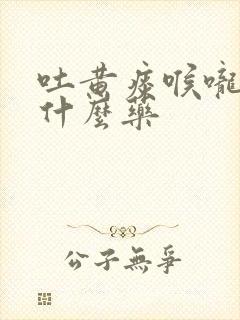 吐黄痰喉嚨
什麼藥
公子無爭